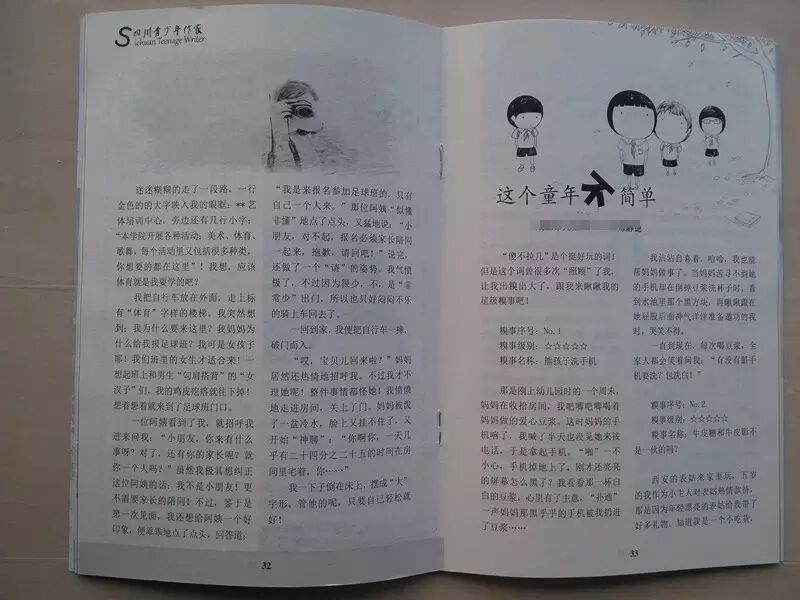 四川青少年作家
Sichuan Teenage Writer
迷迷糊糊的走了一段路，一行
金色的的大字映入我的眼眶：** 艺
体培训中心。旁边还有几行小字：
“本学院开展各种活动：美术、体育、
歌舞，每个活动里又包括很多种类，
你想要的都在这里”！我想，应该
体育就是我要学的吧？
我把自行车放在外面，走上标
有“体育”字样的楼梯，我突然想
到：我为什么要来这里？我妈妈为
什么给我报足球班？我可是女孩子
耶！我们班里的女生才适合来！一
想起班上和男生“勾肩搭背”的“女
汉子”们，我的鸡皮疙瘩就往下掉！
想着想着就来到了足球班门口。
一位阿姨看到了我，就招呼我
进来问我：“小朋友，你来有什么
事呀？对了，还有你的家长呢？就
你一个人吗？”虽然我极其想纠正
这位阿姨的话：我不是小朋友！更
不需要家长的陪同！不过，鉴于是
第一次见面，我还想给阿姨一个好
印象，便乖乖地点了点头，回答道：
“我是来报名参加足球班的，只有
自己一个人来。”那位阿姨“似懂
非懂”地点了点头，又猛地说：“小
朋友，对不起，报名必须家长陪同
一起来，抱歉，请回吧！”说完，
还做了一个“请”的姿势。我气愤
极了，不过因为很少，不，是“非
常少”出门，所以也只好闷闷不乐
的骑上车回去了。
一回到家，我便把自行车一摔，
破门而入。
“哎，宝贝儿回来啦？”妈妈
居然还热情地招呼我。不过我才不
理她呢！整件事情都怪她！我愤愤
地走进房间，关上了门。妈妈被泼
了一盆冷水，脸上又挂不住了，又
开始“神聊”：“你啊你，一天几
乎有二十四分之二十五的时间在房
间里宅着，你……”
我一下子倒在床上，摆成“大”
字形。管他的呢，只要自己轻松就
好！
32
这个童年不简单
“傻不拉几”是个挺好玩的词！
但是这个词曾很多次“照顾”了我，
让我出糗出大了，跟我来瞅瞅我的
星级糗事吧！
糗事序号：No.1
糗事级别：☆☆☆☆☆
糗事名称：熊孩子洗手机
那是刚上幼儿园时的一个周末，
妈妈在收拾房间，我吧唧吧唧喝着
妈妈做的爱心豆浆。这时妈妈的手
机响了，我喊了半天也没见她来接
电话，于是拿起手机。“啪”一不
小心，手机掉地上了，刚才还亮亮
的屏幕怎么黑了？我看看那一杯白
白的豆浆，心里有了主意，“扑通”
一声妈妈那黑乎乎的手机被我扔进
了豆浆……
我沾沾自喜着，哈哈，我也能
帮妈妈做事了。当妈妈苦寻不到她
的手机却在倒掉豆浆洗杯子时，看
到水池里那个黑方块，再瞅瞅跟在
她屁股后面神气洋洋准备邀功的我
时，哭笑不得。
一直到现在，每次喝豆浆，全
家人都会笑着问我：“有没有脏手
机要洗？包洗白！”
糗事序号：No.2
糗事级别：☆☆☆☆☆
糗事名称：牛皮糖和牛皮影不
是一伙的吗？
西安的表姑来家里玩，五岁
的我作为小主人对表姑热情款待，
那是因为年轻漂亮的表姑给我带了
好多礼物。知道我是一个小吃货，
33